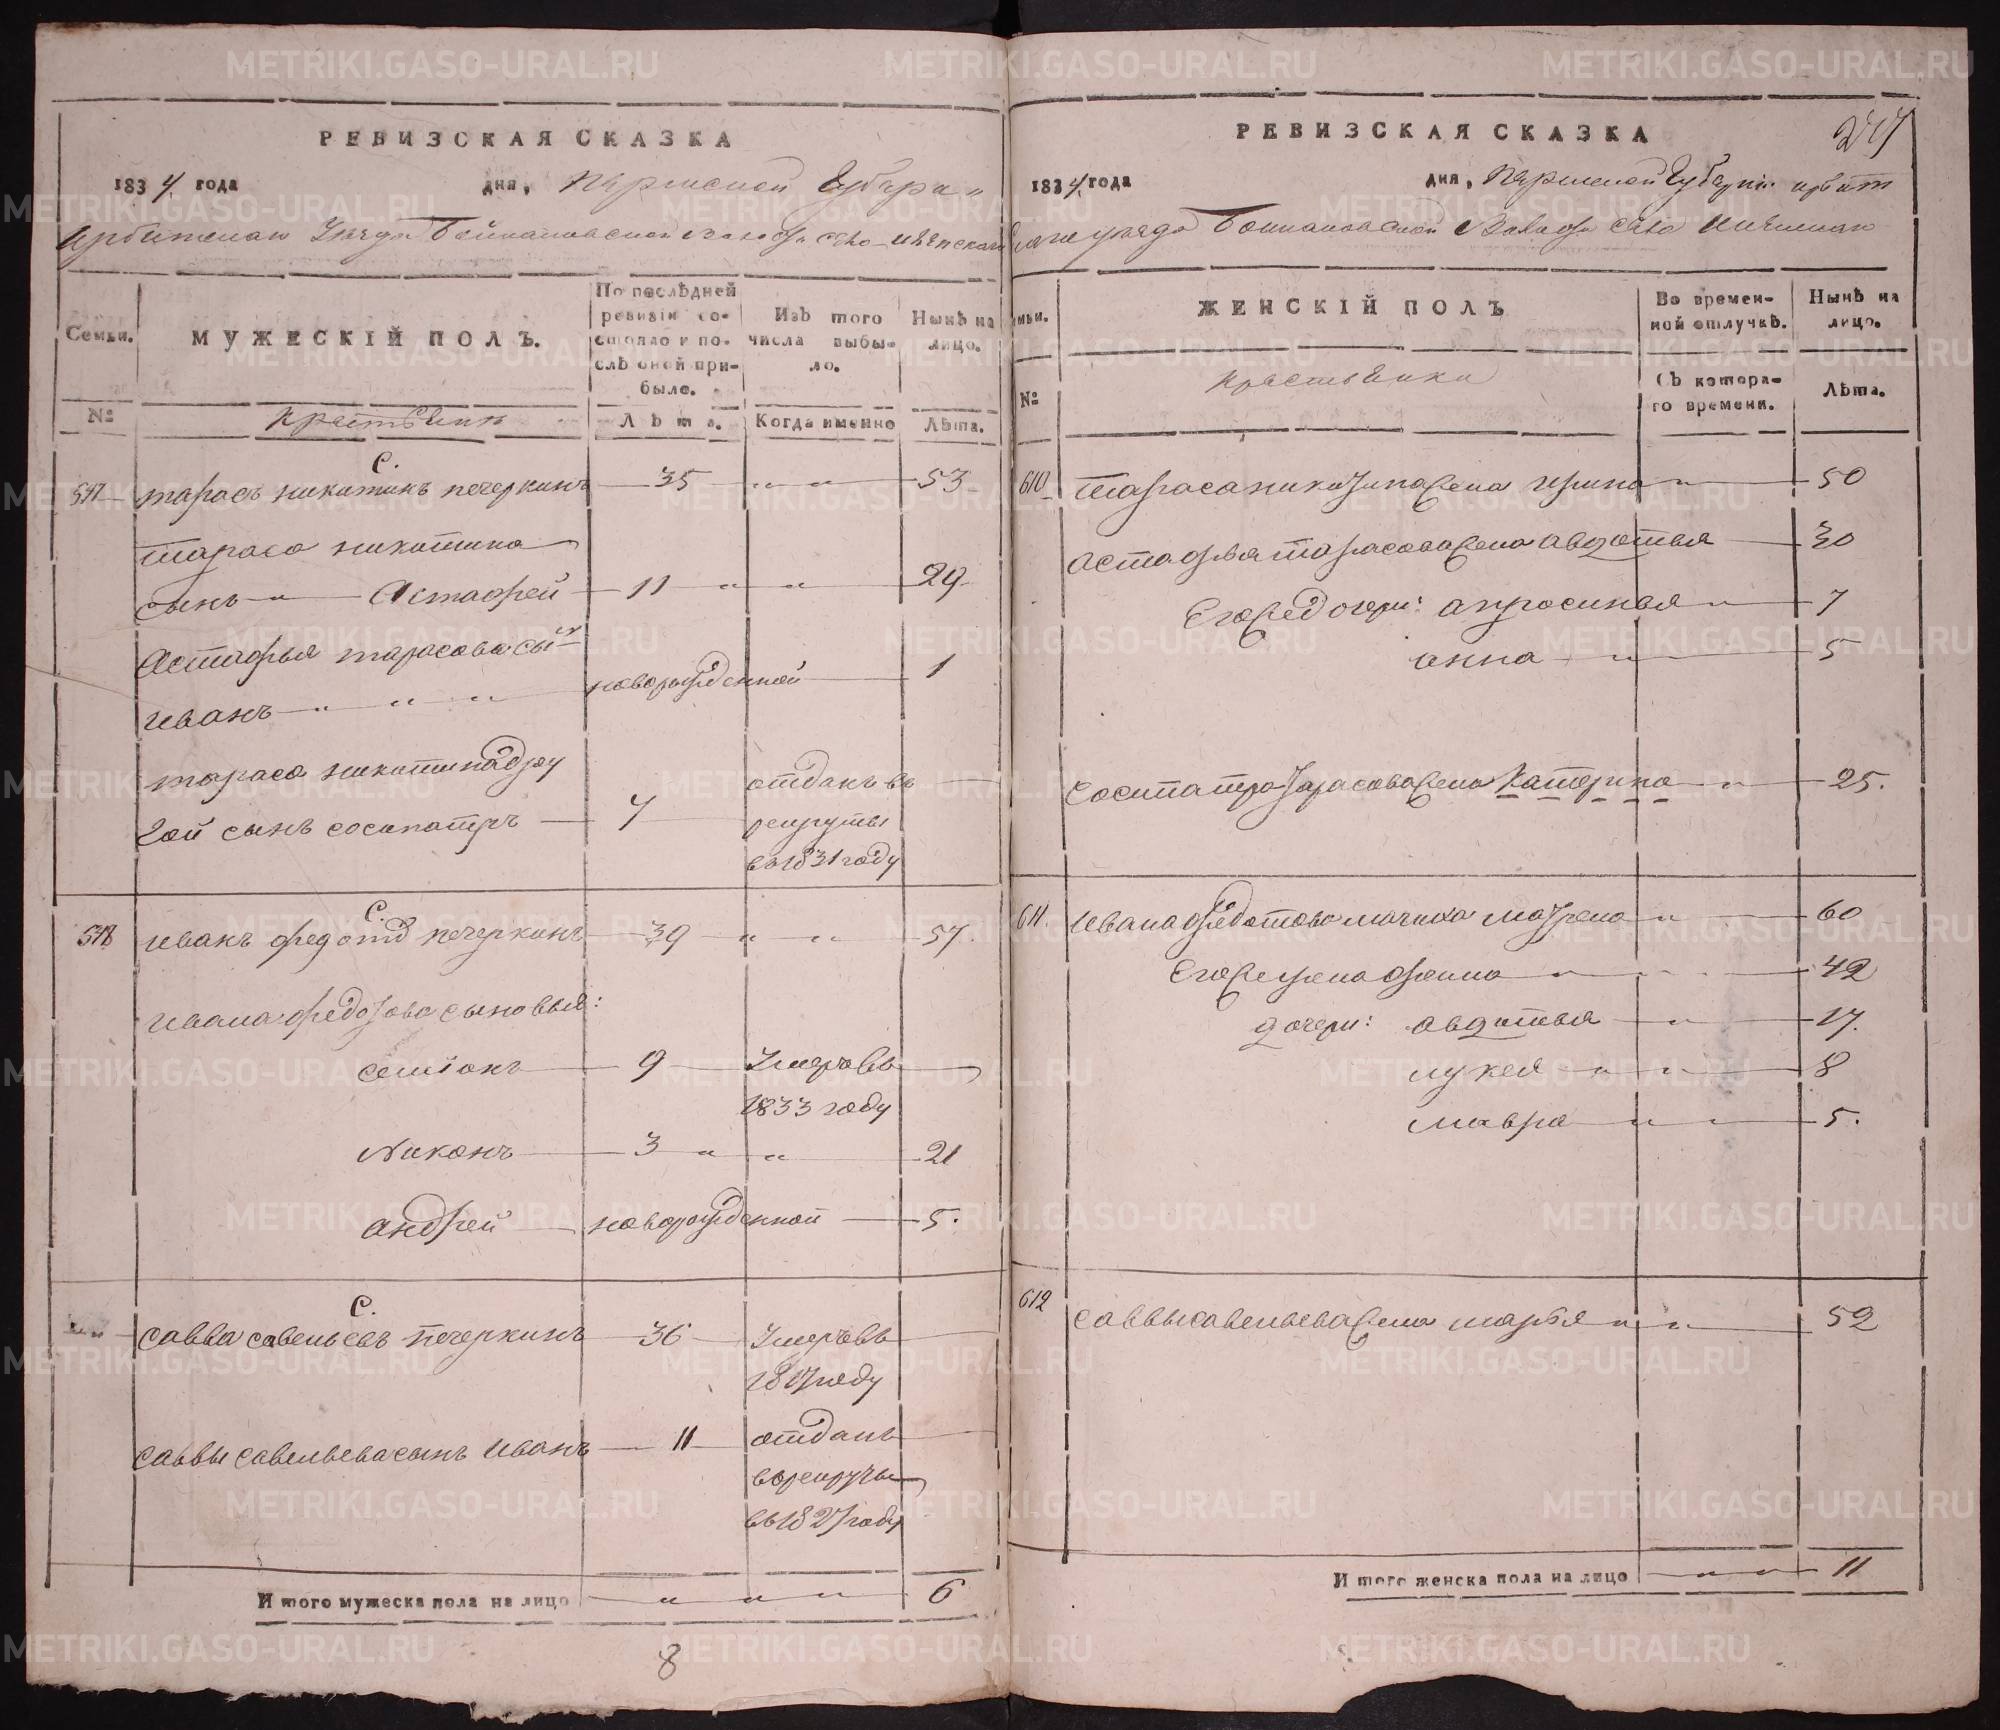 РЕВИЗСКАЯ СКАЗКА
1834 года дня, Пермской Губерни
Ирбитскаго Уезда Бойкаловской волости село
МУЖЕСКІЙ ПОЛЪ.
Семьи.
По послѣдней ревизіи состояло и послѣ оной прибыло.
Изъ того числа выбыло.
Нынѣ на лицо.
№
Крестьяни
Лѣта.
Когда именно
Лѣта.
С.
тарасъ никитинъ печеркинъ 35 „ „ 53
тараса никитина
сынъ „ Астафей 11 „ „ 29
Астафья тарасова сынъ
иванъ „ „ „ новорожденной 1
тараса никитина дру
гой сынъ сосипатръ 7 отданъ въ
рекруты
въ 1831 году
С.
иванъ федотов печеркинъ 39 „ „ 57.
ивана федотова сыновья:
семионъ 9 Умеръ въ
1833 году
Никонъ 3 „ „ 21
андрей новорожденной 5.
С.
савва савельевъ печеркинъ 36 Умеръ въ
1817 году
саввы савельева сынъ иванъ 11 отданъ
въ рекруты
въ 1827 году
И того мужеска пола на лицо „ „ „ 6
8
РЕВИЗСКАЯ СКАЗКА
1834 года дня, Пермской Губерни ирбит
скаго уезда Волости село
Семьи.
ЖЕНСКІЙ ПОЛЪ
Во временной отлучкѣ.
Нынѣ на лицо.
№
крестьянки
Съ котораго времени.
Лѣта.
610 Тараса никитина жена ирина „ 50
астафья тарасова жена авдотья 30
Его же дочери: апросинья „ 7
анна „ 5
сосипатра тарасова жена катерина „ 25.
611. ивана федотова мачиха матрена „ 60
Его жена „ 42
дочери: авдотья „ 17.
лукея „ „ 8
мавра „ „ 5.
612 саввы савельева жена марья „ „ 52
И того женска пола на лицо „ „ 11
METRIKI.GASO-URAL.RU